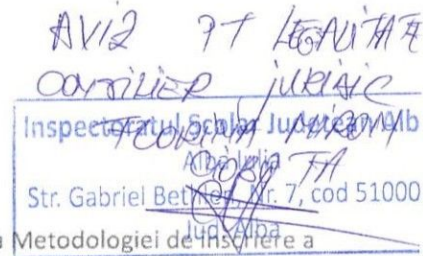 AVIZ PT LEGALITATE
CONSILIER JURIDIC
Inspectoratul Școlar Județean Alb
Alba Iulia
Str. Gabriel Bethlen, Nr. 7, cod 51000
Jud. Alba
Metodologiei de înscriere a